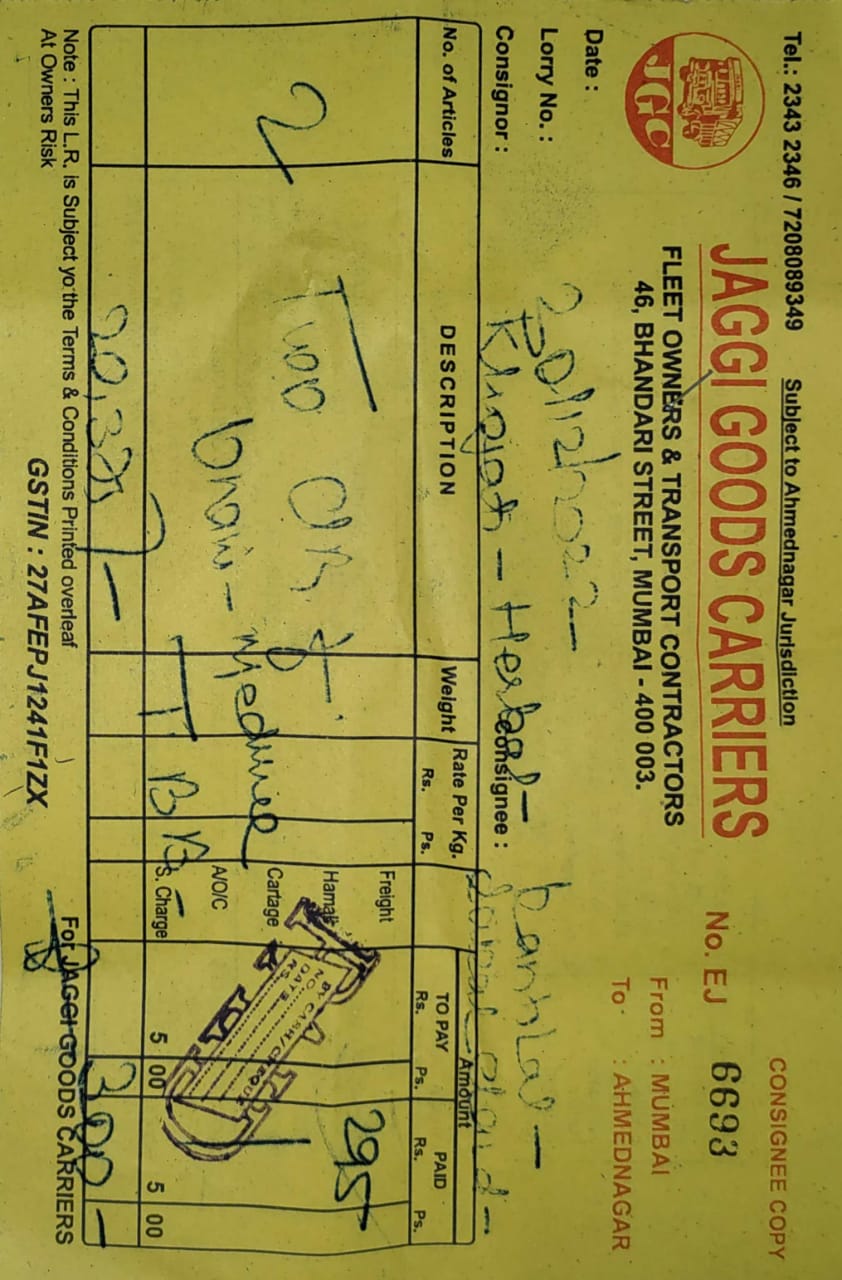 Tel.: 2343 2346 / 7208089349 Subject to Ahmednagar Jurisdiction
CONSIGNEE COPY
JGC
JAGGI GOODS CARRIERS
FLEET OWNERS & TRANSPORT CONTRACTORS
46, BHANDARI STREET, MUMBAI - 400 003.
No. EJ 6693
From : MUMBAI
To : AHMEDNAGAR
Date :
Lorry No. :
Consignor : Herbal - Consignee :
No. of Articles DESCRIPTION Weight Rate Per Kg. Amount
Rs. Ps. TO PAY PAID
Rs. Ps. Rs. Ps.
2 Two Freight 295
Hamali
Cartage
A/O/C
T B B - S. Charge 5 00 5 00
300 -
PAID
BY CASH/CHEQUE
NO.
DATE
RS.
Note : This L.R. is Subject yo the Terms & Conditions Printed overleaf
At Owners Risk
GSTIN : 27AFEPJ1241F1ZX
For JAGGI GOODS CARRIERS